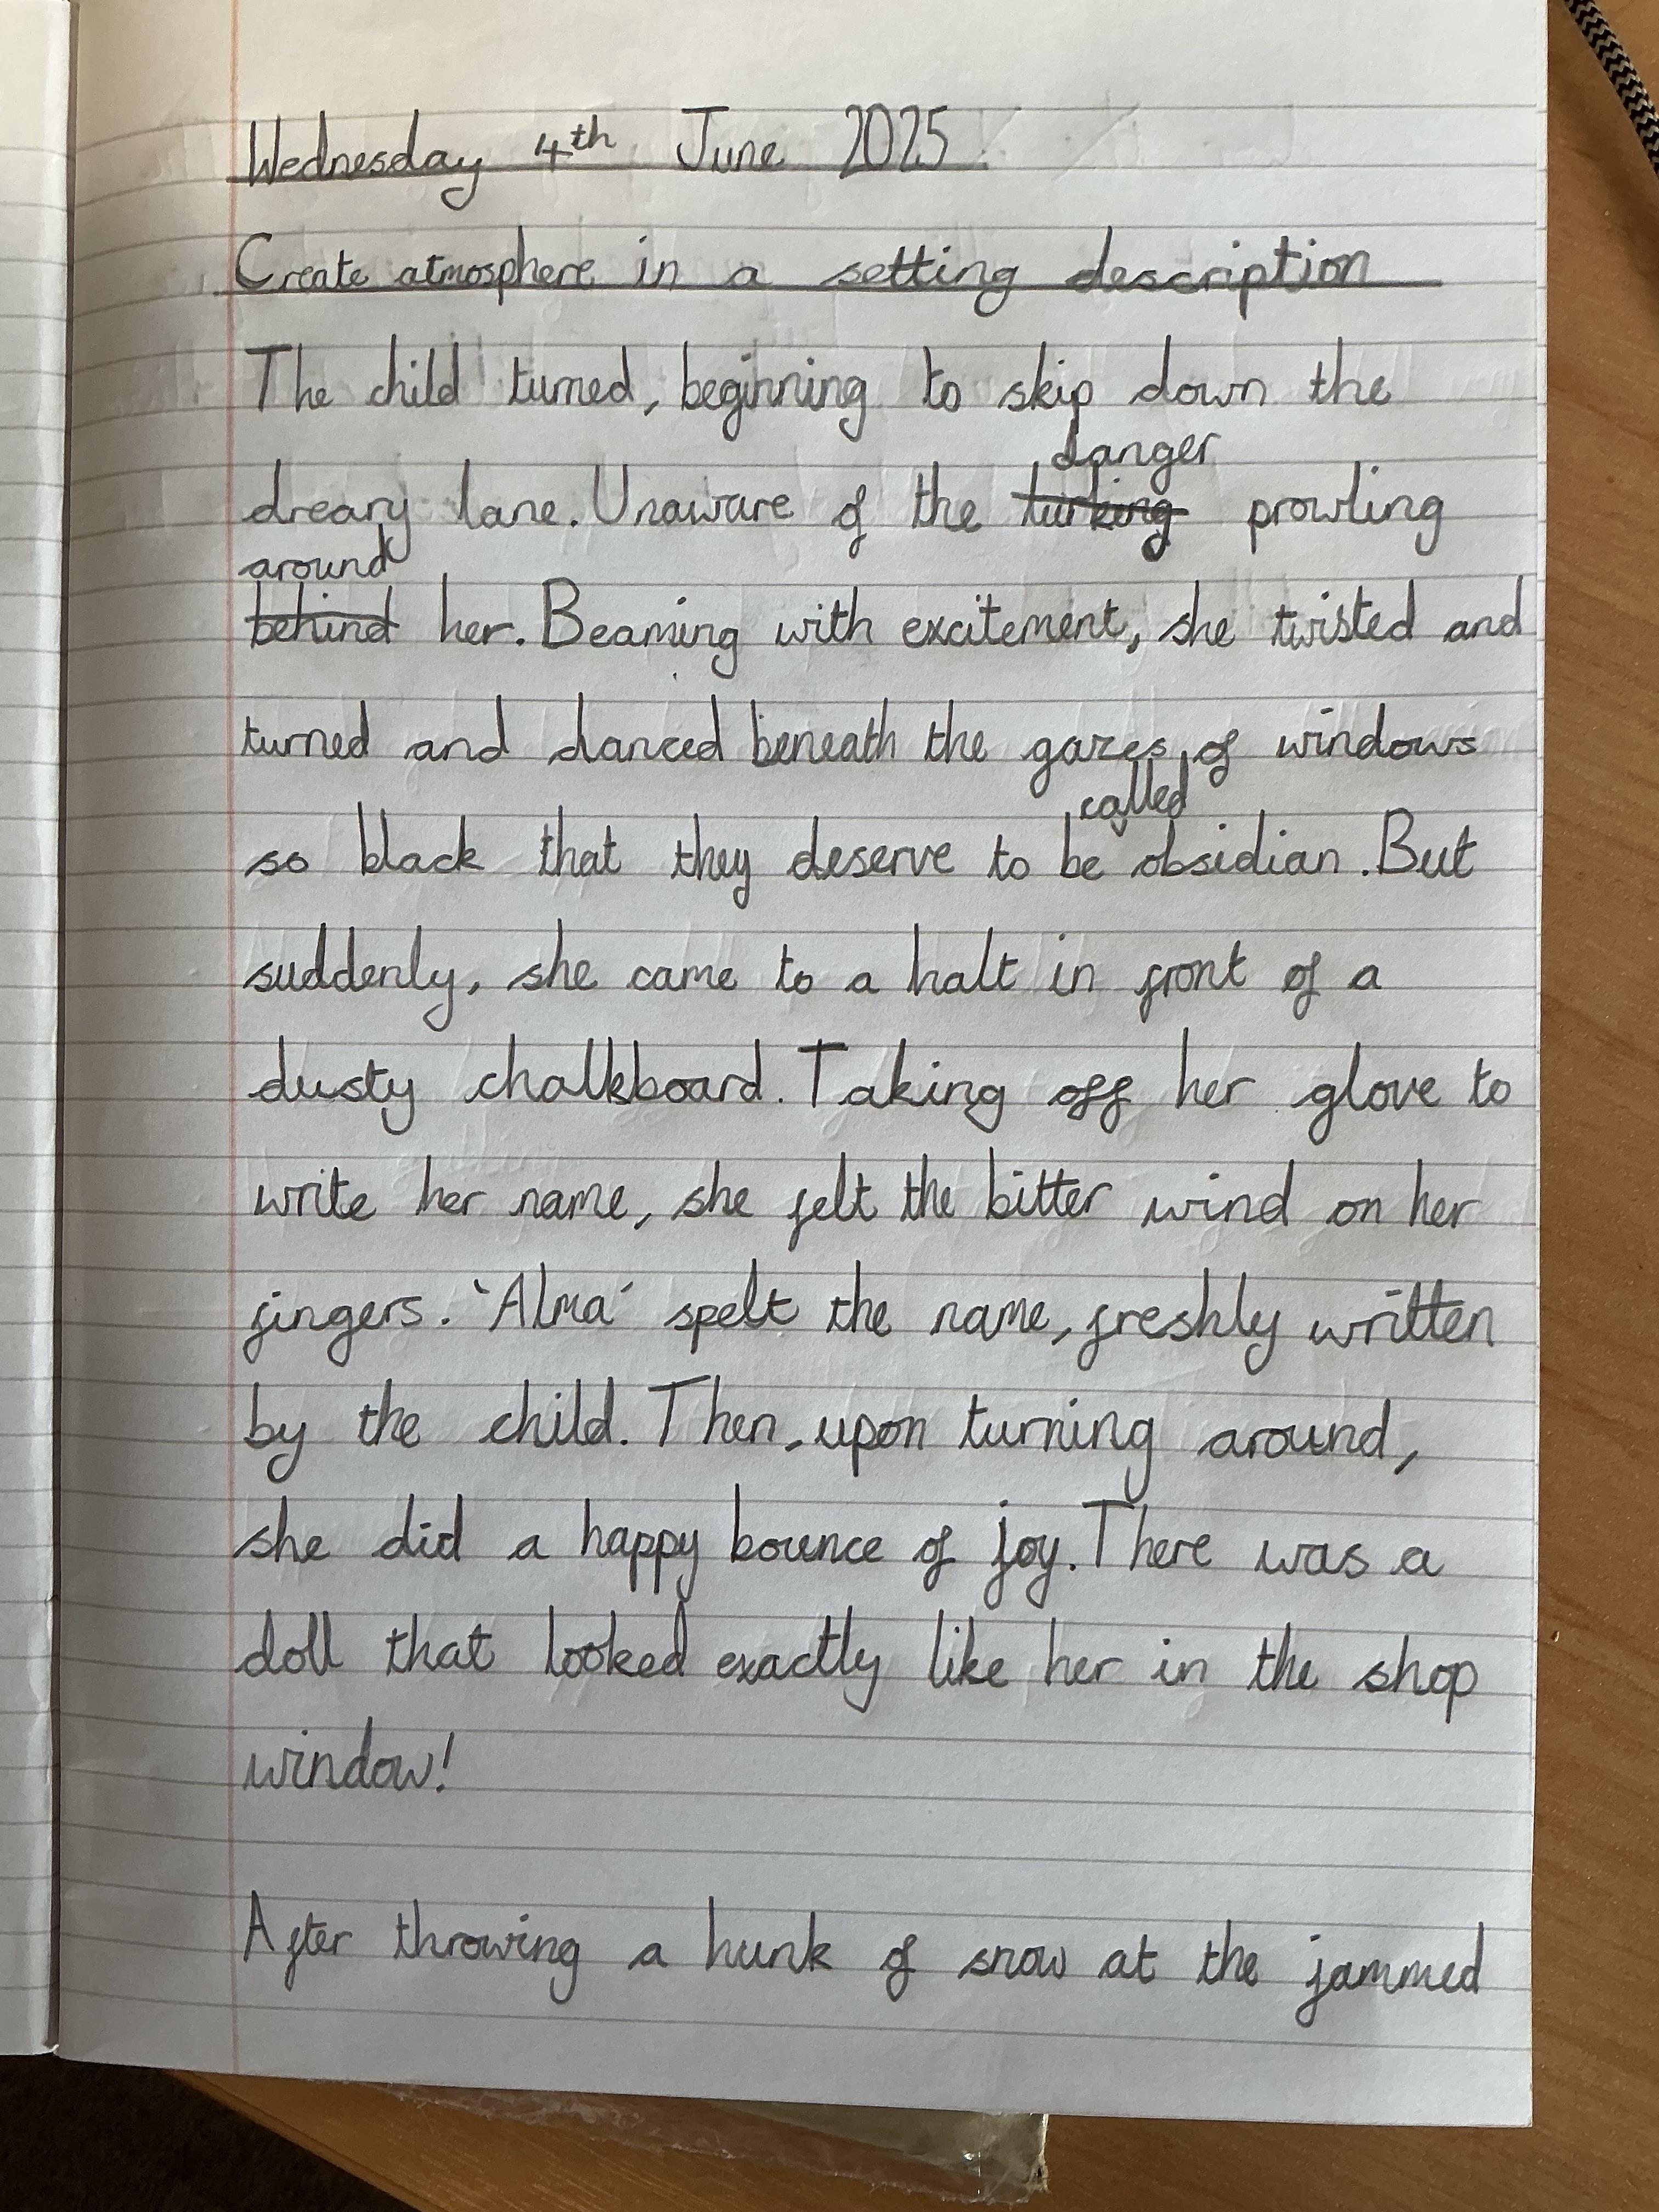 Wednesday 4th June 2025
Create atmosphere in a setting description
The child turned, beginning to skip down the
danger
dreary lane. Unaware of the lurking prowling
around
behind her. Beaming with excitement, she twisted and
turned and danced beneath the gazes of windows
called
so black that they deserve to be obsidian. But
suddenly, she came to a halt in front of a
dusty chalkboard. Taking off her glove to
write her name, she felt the bitter wind on her
fingers. 'Alma' spelt the name, freshly written
by the child. Then, upon turning around,
she did a happy bounce of joy. There was a
doll that looked exactly like her in the shop
window!
After throwing a hunk of snow at the jammed